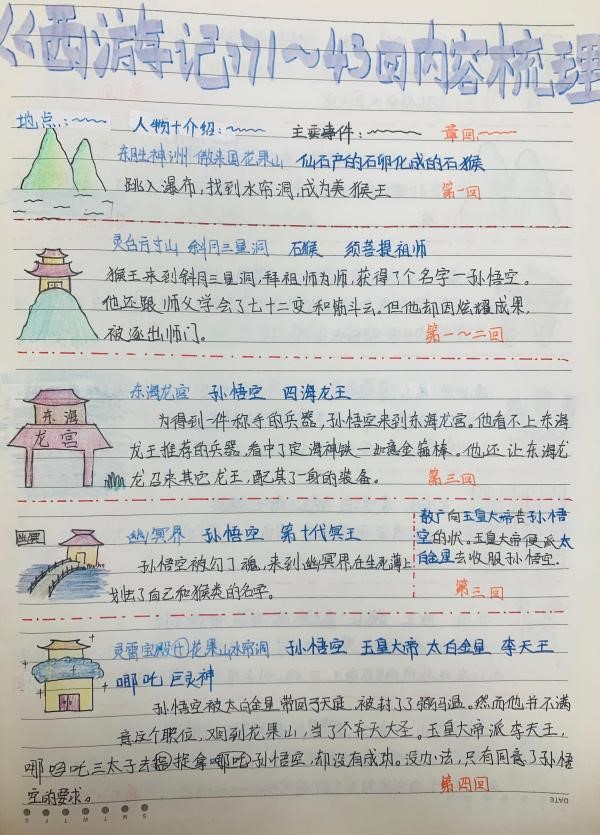 《西游记》1～43回内容梳理
地点： 人物+介绍： 主要事件： 章回
东胜神洲 傲来国花果山 仙石产的石卵化成的石猴
跳入瀑布，找到水帘洞，成为美猴王 第一回
灵台方寸山 斜月三星洞 石猴 须菩提祖师
猴王来到斜月三星洞，拜祖师为师，获得了个名字—孙悟空。
他还跟师父学会了七十二变和筋斗云。但他却因炫耀成果，
被逐出师门。 第一～二回
东海龙宫 孙悟空 四海龙王
东海
龙宫
为得到一件称手的兵器，孙悟空来到东海龙宫。他看不上东海
龙王推荐的兵器，看中了定海神铁—如意金箍棒。他还让东海龙
龙召来其它龙王，配其了一身的装备。 第三回
幽冥
幽冥界 孙悟空 第十代冥王
孙悟空被勾了魂，来到幽冥界在生死薄上
划去了自己和猴类的名字。
敖广向玉皇大帝告孙悟
空的状。玉皇大帝便派太
白金星去收服孙悟空。
第三回
灵霄宝殿 花果山水帘洞 孙悟空 玉皇大帝 太白金星 李天王
哪吒 巨灵神
孙悟空被太白金星带回了天庭，被封了了弼马温。然而他并不满
意这个职位，又回到花果山，当了个齐天大圣。玉皇大帝派李天王，
哪吒三太子去捉拿孙悟空，却没有成功。没办法，只有同意了孙悟
空的要求。 第四回
DATE
S M T W T F S